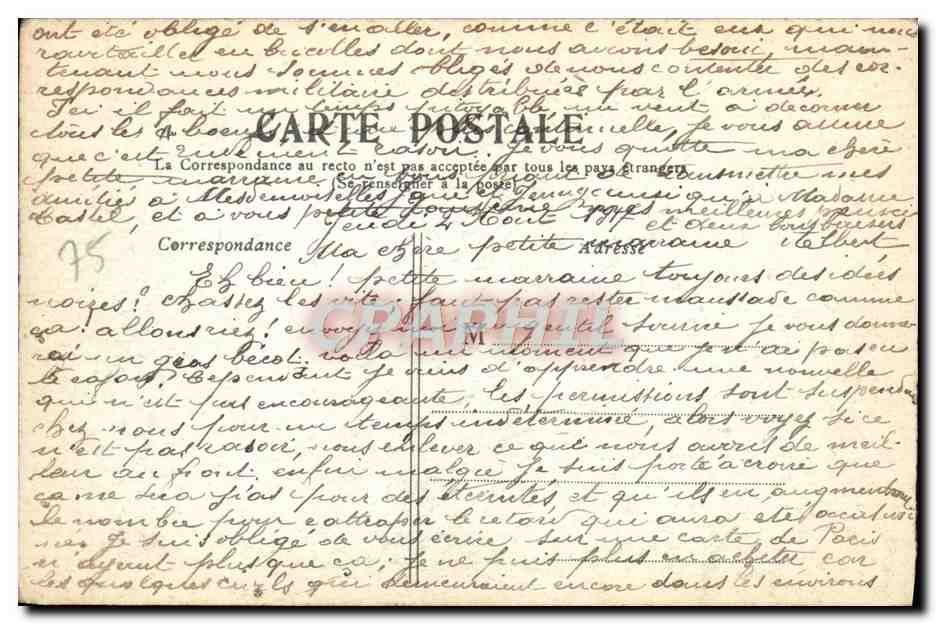 ont été obligé de s'en aller, comme c'était eux qui nous
ravitailler en bricolles dont nous avions besoin, main-
tenant nous sommes obligés de nous contenter des cor-
respondances militaire distribuées par l'armée.
Ici il fait un temps pitoyable un vent à décorner
tous les boeufs
CARTE POSTALE
je vous assure
que c'est rudement rasoir. Je vous quitte ma chère
La Correspondance au recto n'est pas acceptée par tous les pays étrangers
(Se renseigner à la poste)
petite marraine en vous priant de transmettre mes
amitiés à Mesdemoiselles ainsi qu'à Madame
Castel, et à vous petite mes meilleures
et deux bons baisers
Jeudi 4 Août
75
Correspondance
Adresse
Ma chère petite marraine Albert
Eh bien! petite marraine toujours des idées
noires? chassez les vite. faut pas rester maussade comme
ça! allons riez! envoyez moi un gentil sourire je vous donne-
rai un gros bécot. voilà un moment que je n'ai pas eu
le cafard. Cependant je viens d'apprendre une nouvelle
qui n'est pas encourageante, les permissions sont suspendues
chez nous pour un temps indéterminé, alors voyez si ce
n'est pas rasoir, nous enlever ce que nous avons de meil-
leur au front. enfin malgré je suis porté à croire que
ça ne sera pas pour des éternités et qu'ils en augmenteront
le nombre pour rattraper le retard qui aura été occasion-
né. Je suis obligé de vous écrire sur une carte de Paris
n'ayant plus que ça. Je ne puis plus en acheter car
les quelques civils qui demeuraient encore dans les environs
M
CPAPHIL